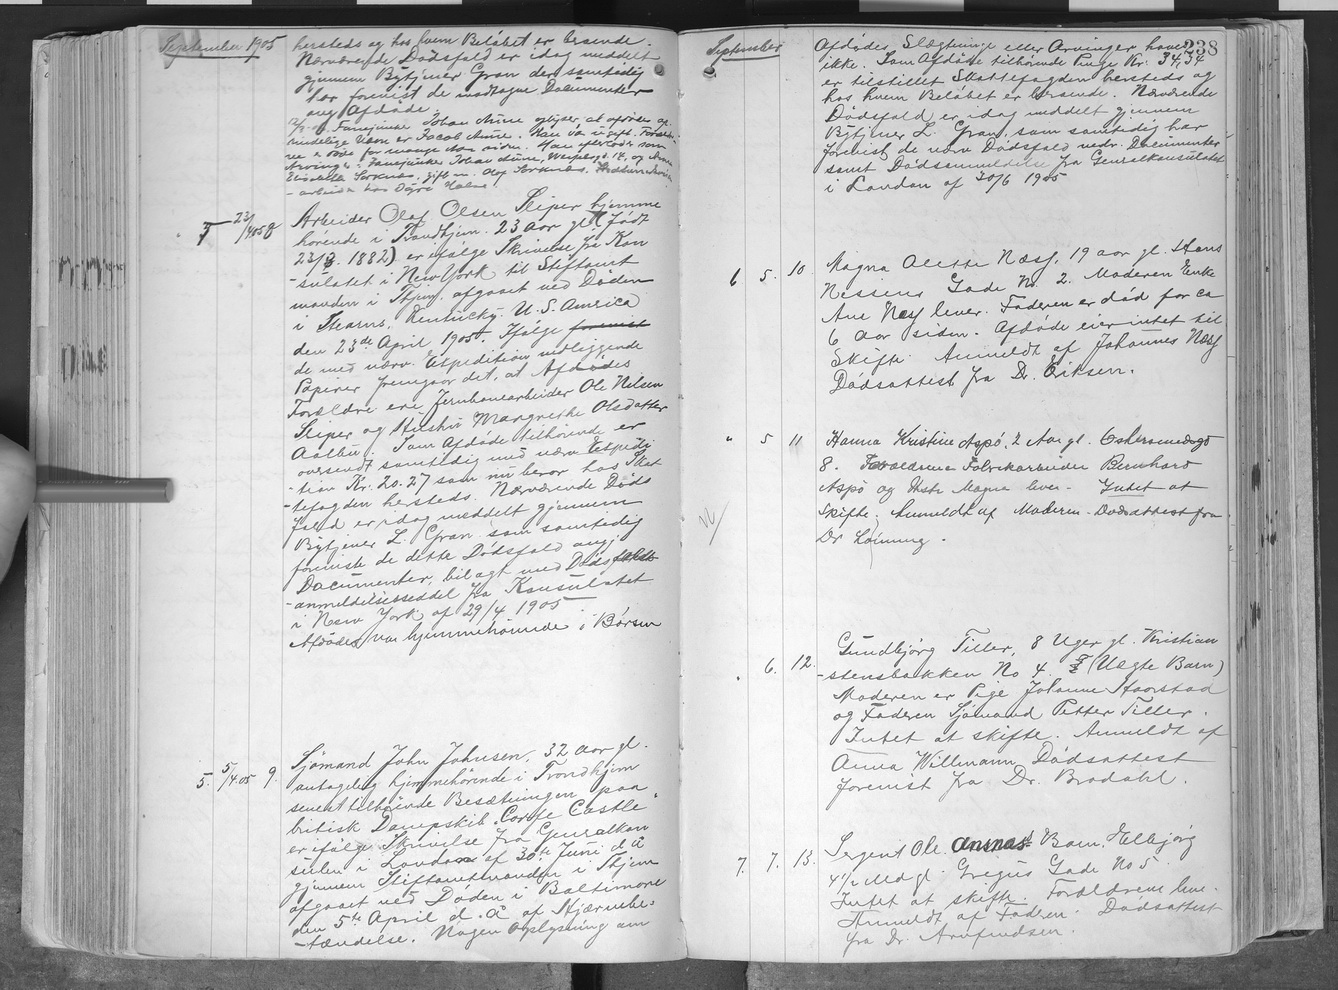 September 1905
hersteds og hos hvem Beløbet er beroende.
Nærværende Dødsfald er idag meddelt
gjennem Bytjener Gran der samtidig
har forevist de modtagne Documenter
ang Afdøde.
Fanejunker Johan Aune oplyser, at afdødes op-
rindelige Navn er Jacob Aune. Han var ugift. Foræld-
rene er døde for mange Aar siden. Han efterlod som
Arvinger: Fanejunker Johan Aune, og
Elisabeth gift m. Olaf
- arbeider hos
5 23/4 05 8 Arbeider Olaf Olsen Sliper hjemme
hørende i Trondhjem. 23 Aar gl. (født
23/3. 1882) er ifølge Skrivelse fra Kon
-sulatet i New York til Stiftamt
manden i Thjm. afgaaet ved Døden
i Stearns, Kentucky. U. S. America
den 23de April 1905. Ifølge forevist
de med nærv. Expedition medliggende
Papirer fremgaar det, at Afdødes
Forældre ere Jernbanearbeider Ole Nilsen
Sliper og Hustru Margrethe Olsdatter
Aalbu. Som Afdøde tilhørende er
oversendt samtidig med nærv Expedi
-tion Kr. 20.27 som nu beror hos Skat
-tefogden hersteds. Nærværende Døds
fald er idag meddelt gjennem
Bytjener L. Gran som samtidig
foreviste de dette Dødsfald angj.
Documenter, bilagt med Dødsfalds
-anmeldelsesseddel fra Konsulatet
i New York af 29/4 1905
Afdøde var hjemmehørende i Børsen
5. 5/4.05 9. Sjømand John Johnsen, 32 Aar gl.
antagelig hjemmehørende i Trondhjem
senest tilhørende Besætningen paa
britisk Dampskib "Corfe Castle"
er ifølge Skrivelse fra Generalkon
sulen i London af 30te Juni d. A
gjennem Stiftamtmanden i Thjem
afgaaet ved Døden i Baltimore
den 5te April d. A af Hjærnebe-
-tændelse. Nogen Oplysning om
September 238
Afdødes Slægtninge eller Arvinger haves
ikke. Som Afdøde tilhørende Penge Kr. 34,34
er tilstillet Skattefogden hersteds og
hos hvem Beløbet er beroende. Nærværende
Dødsfald er idag meddelt gjennem
Bytjener L. Gran, som samtidig har
forevist de nærv Dødsfald vedr. Documenter
samt Dødsanmeldelse fra Generalkonsulatet
i London af 30/6 1905
6 5. 10 Magna Alette Næss, 19 aar gl. Hans
Nissens Gade No. 2. Moderen Enke
Ane Næss lever. Faderen er død for ca
6 Aar siden. Afdøde eier intet til
Skifte. Anmeldt af Johannes Næss
Dødsattest fra Dr. Eriksen.
" 5 11 Hanna Kristine Aspø, 2 Aar gl.
8. Forældrene Fabrikarbeider Bernhard
Aspø og Hstr Magna lever. Intet at
skifte. Anmeldt af Moderen. Dødsattest fra
Dr
6. 12. Gundbjørg Tiller, 8 Uger gl. Kristian
-stensbakken No 4. (Uægte Barn)
Moderen er Pige Johanne
og Faderen Sjømand Petter Tiller.
Intet at skifte. Anmeldt af
Anna Willmann. Dødsattest
forevist fra Dr. Brodahl.
7. 7. 13. Sergent Ole Barn, Elbjørg
4½ Md gl. Gregus Gade No 5.
Intet at skifte. Forældrene leve.
Anmeldt af Faderen. Dødsattest
fra Dr. Arnfindsen.